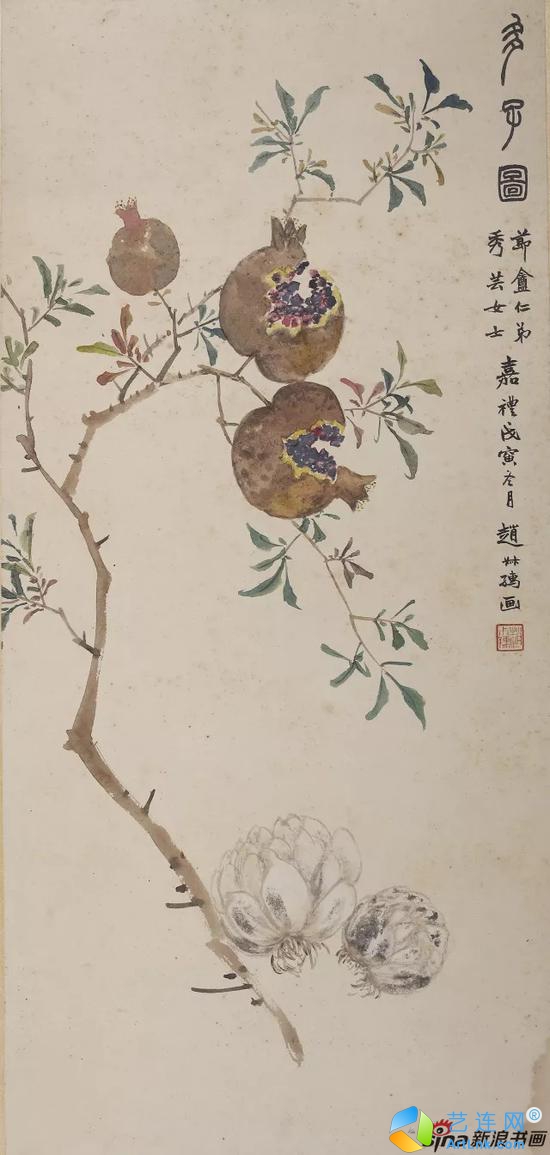 多子圖
節盦仁弟
秀芸女士
嘉禮戊寅冬月 趙叔孺画
艺连网®
sina新浪书画